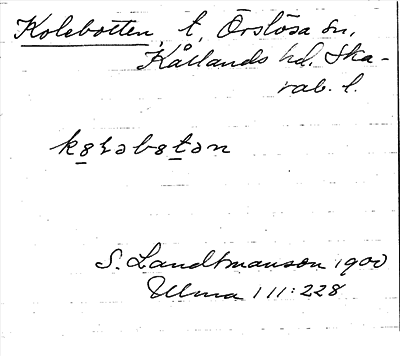 Kolebotten, t, Örslösa sn,
Kållands hd. Ska-
rab. l.
kolabotan
S. Landtmanson 1900
Ulma 111:228